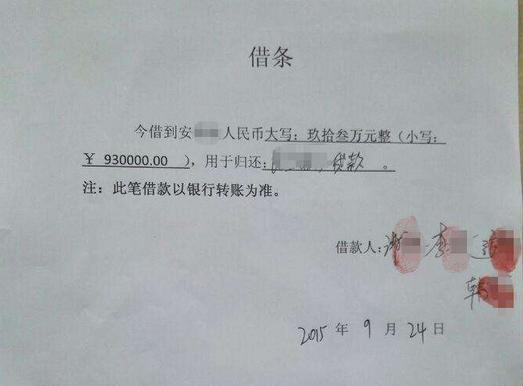 借条
今借到安 人民币大写：玖拾叁万元整（小写：
￥ 930000.00 ），用于归还： 贷款 。
注：此笔借款以银行转账为准。
借款人： 李
韩
2015 年 9 月 24 日